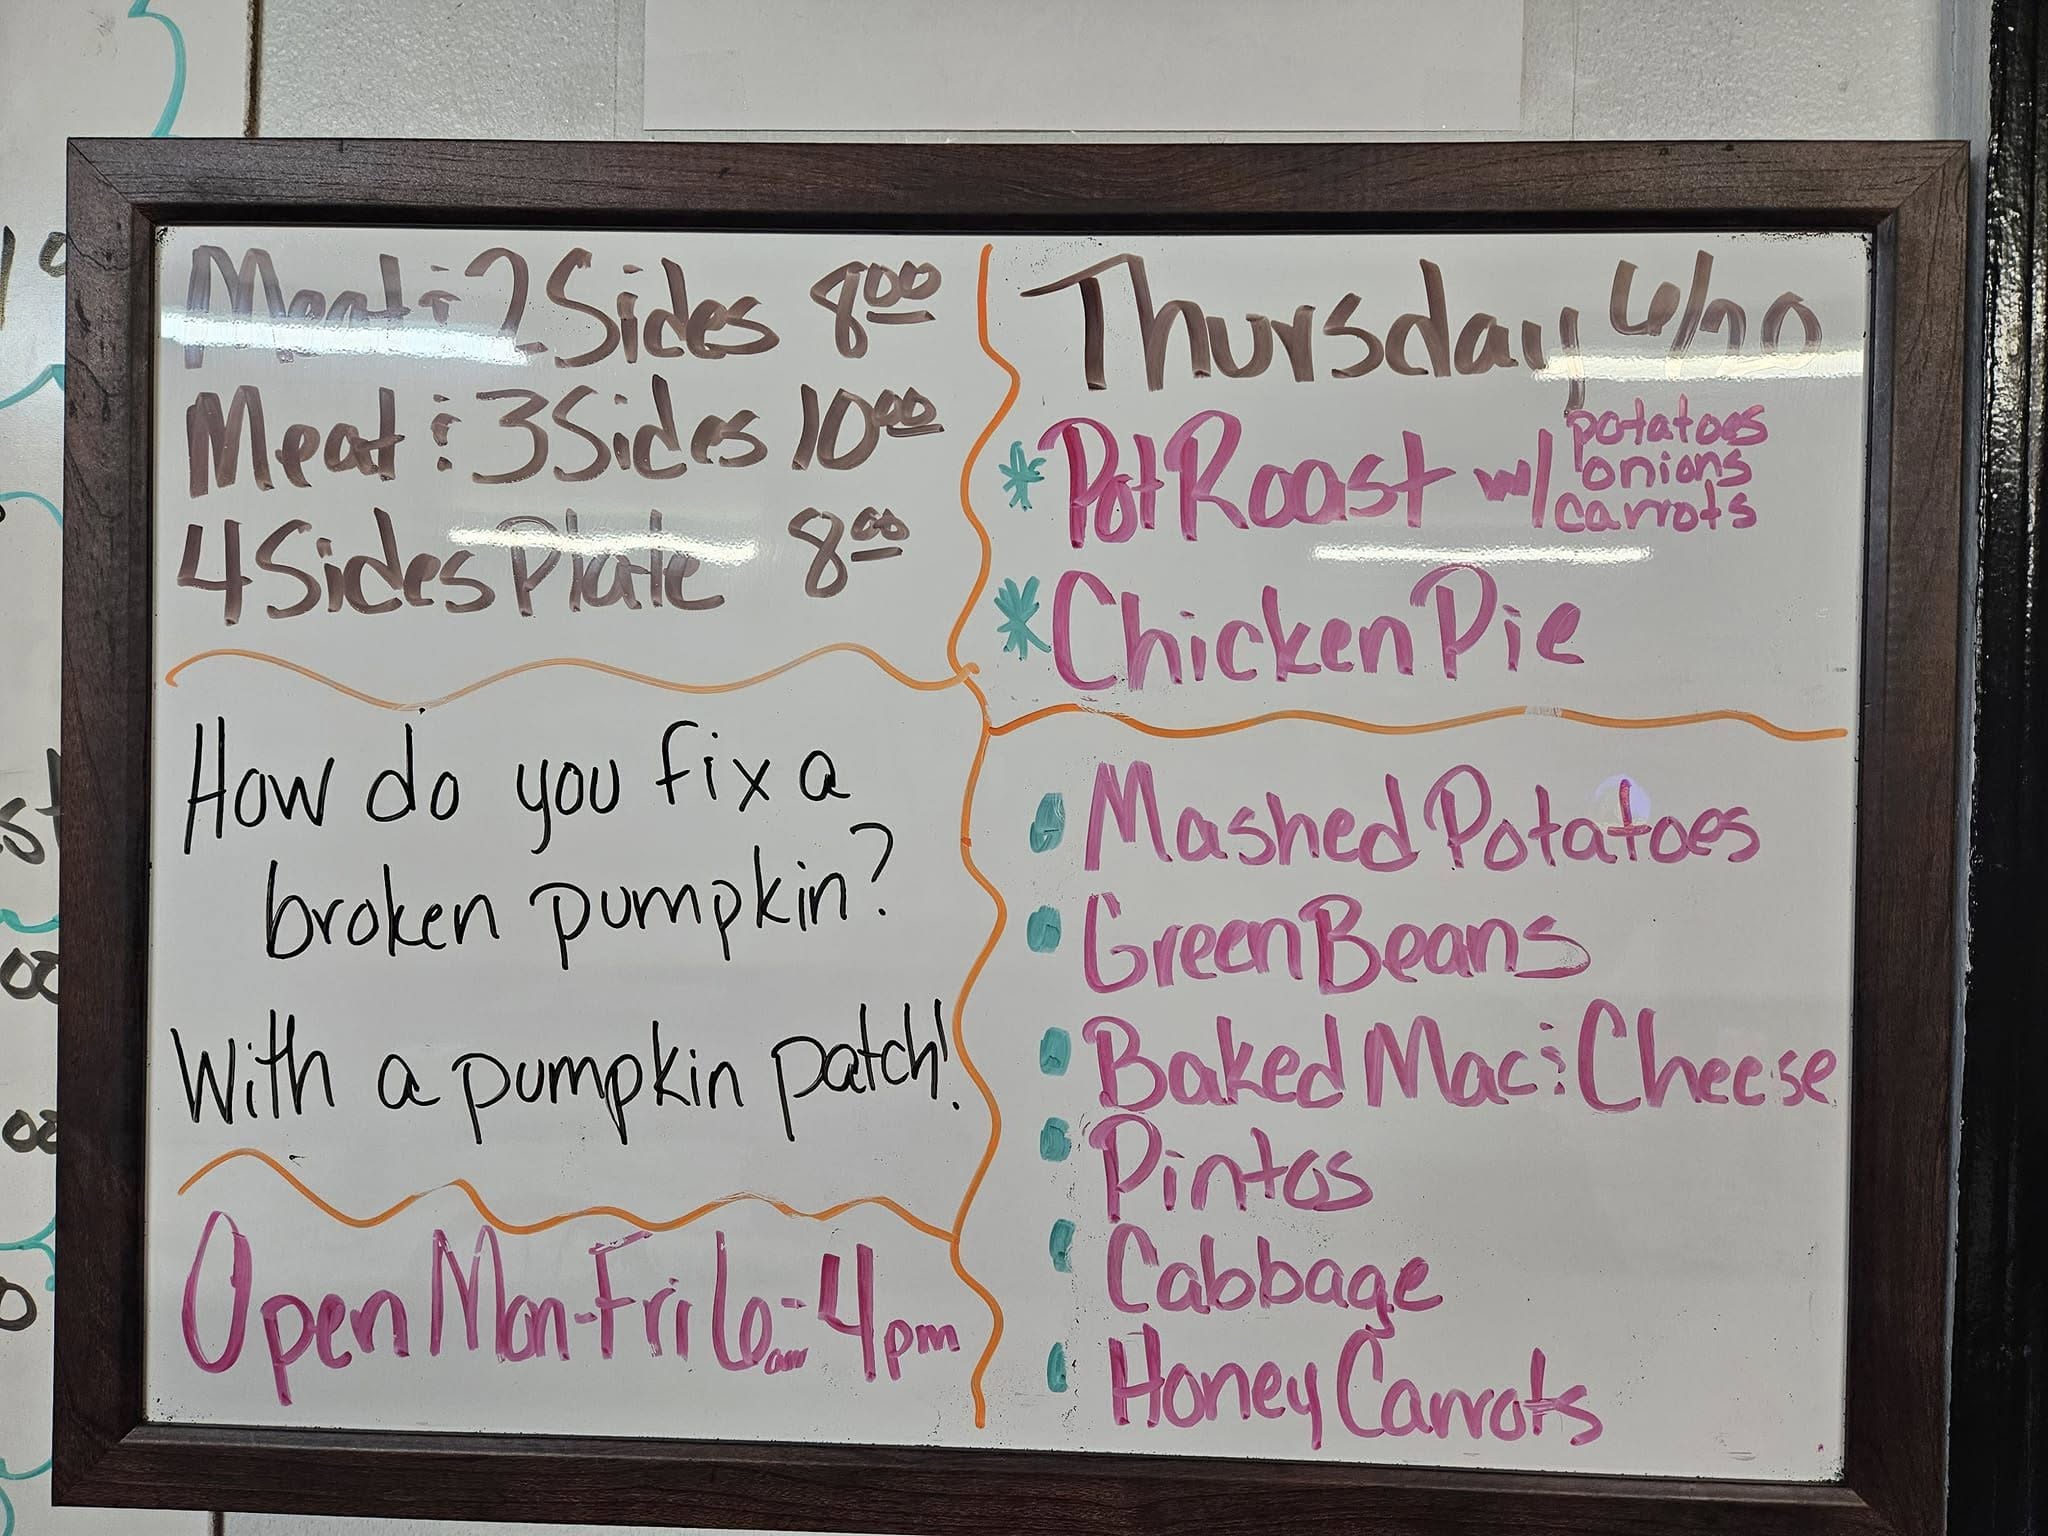 Meat & 2 Sides 8.00
Meat & 3 Sides 10.00
4 Sides Plate 8.00
How do you fix a
broken pumpkin?
With a pumpkin patch!
Open Mon-Fri 6am-4pm
Thursday 6/20
* Pot Roast w/ potatoes
onions
carrots
* Chicken Pie
Mashed Potatoes
Green Beans
Baked Mac & Cheese
Pintos
Cabbage
Honey Carrots